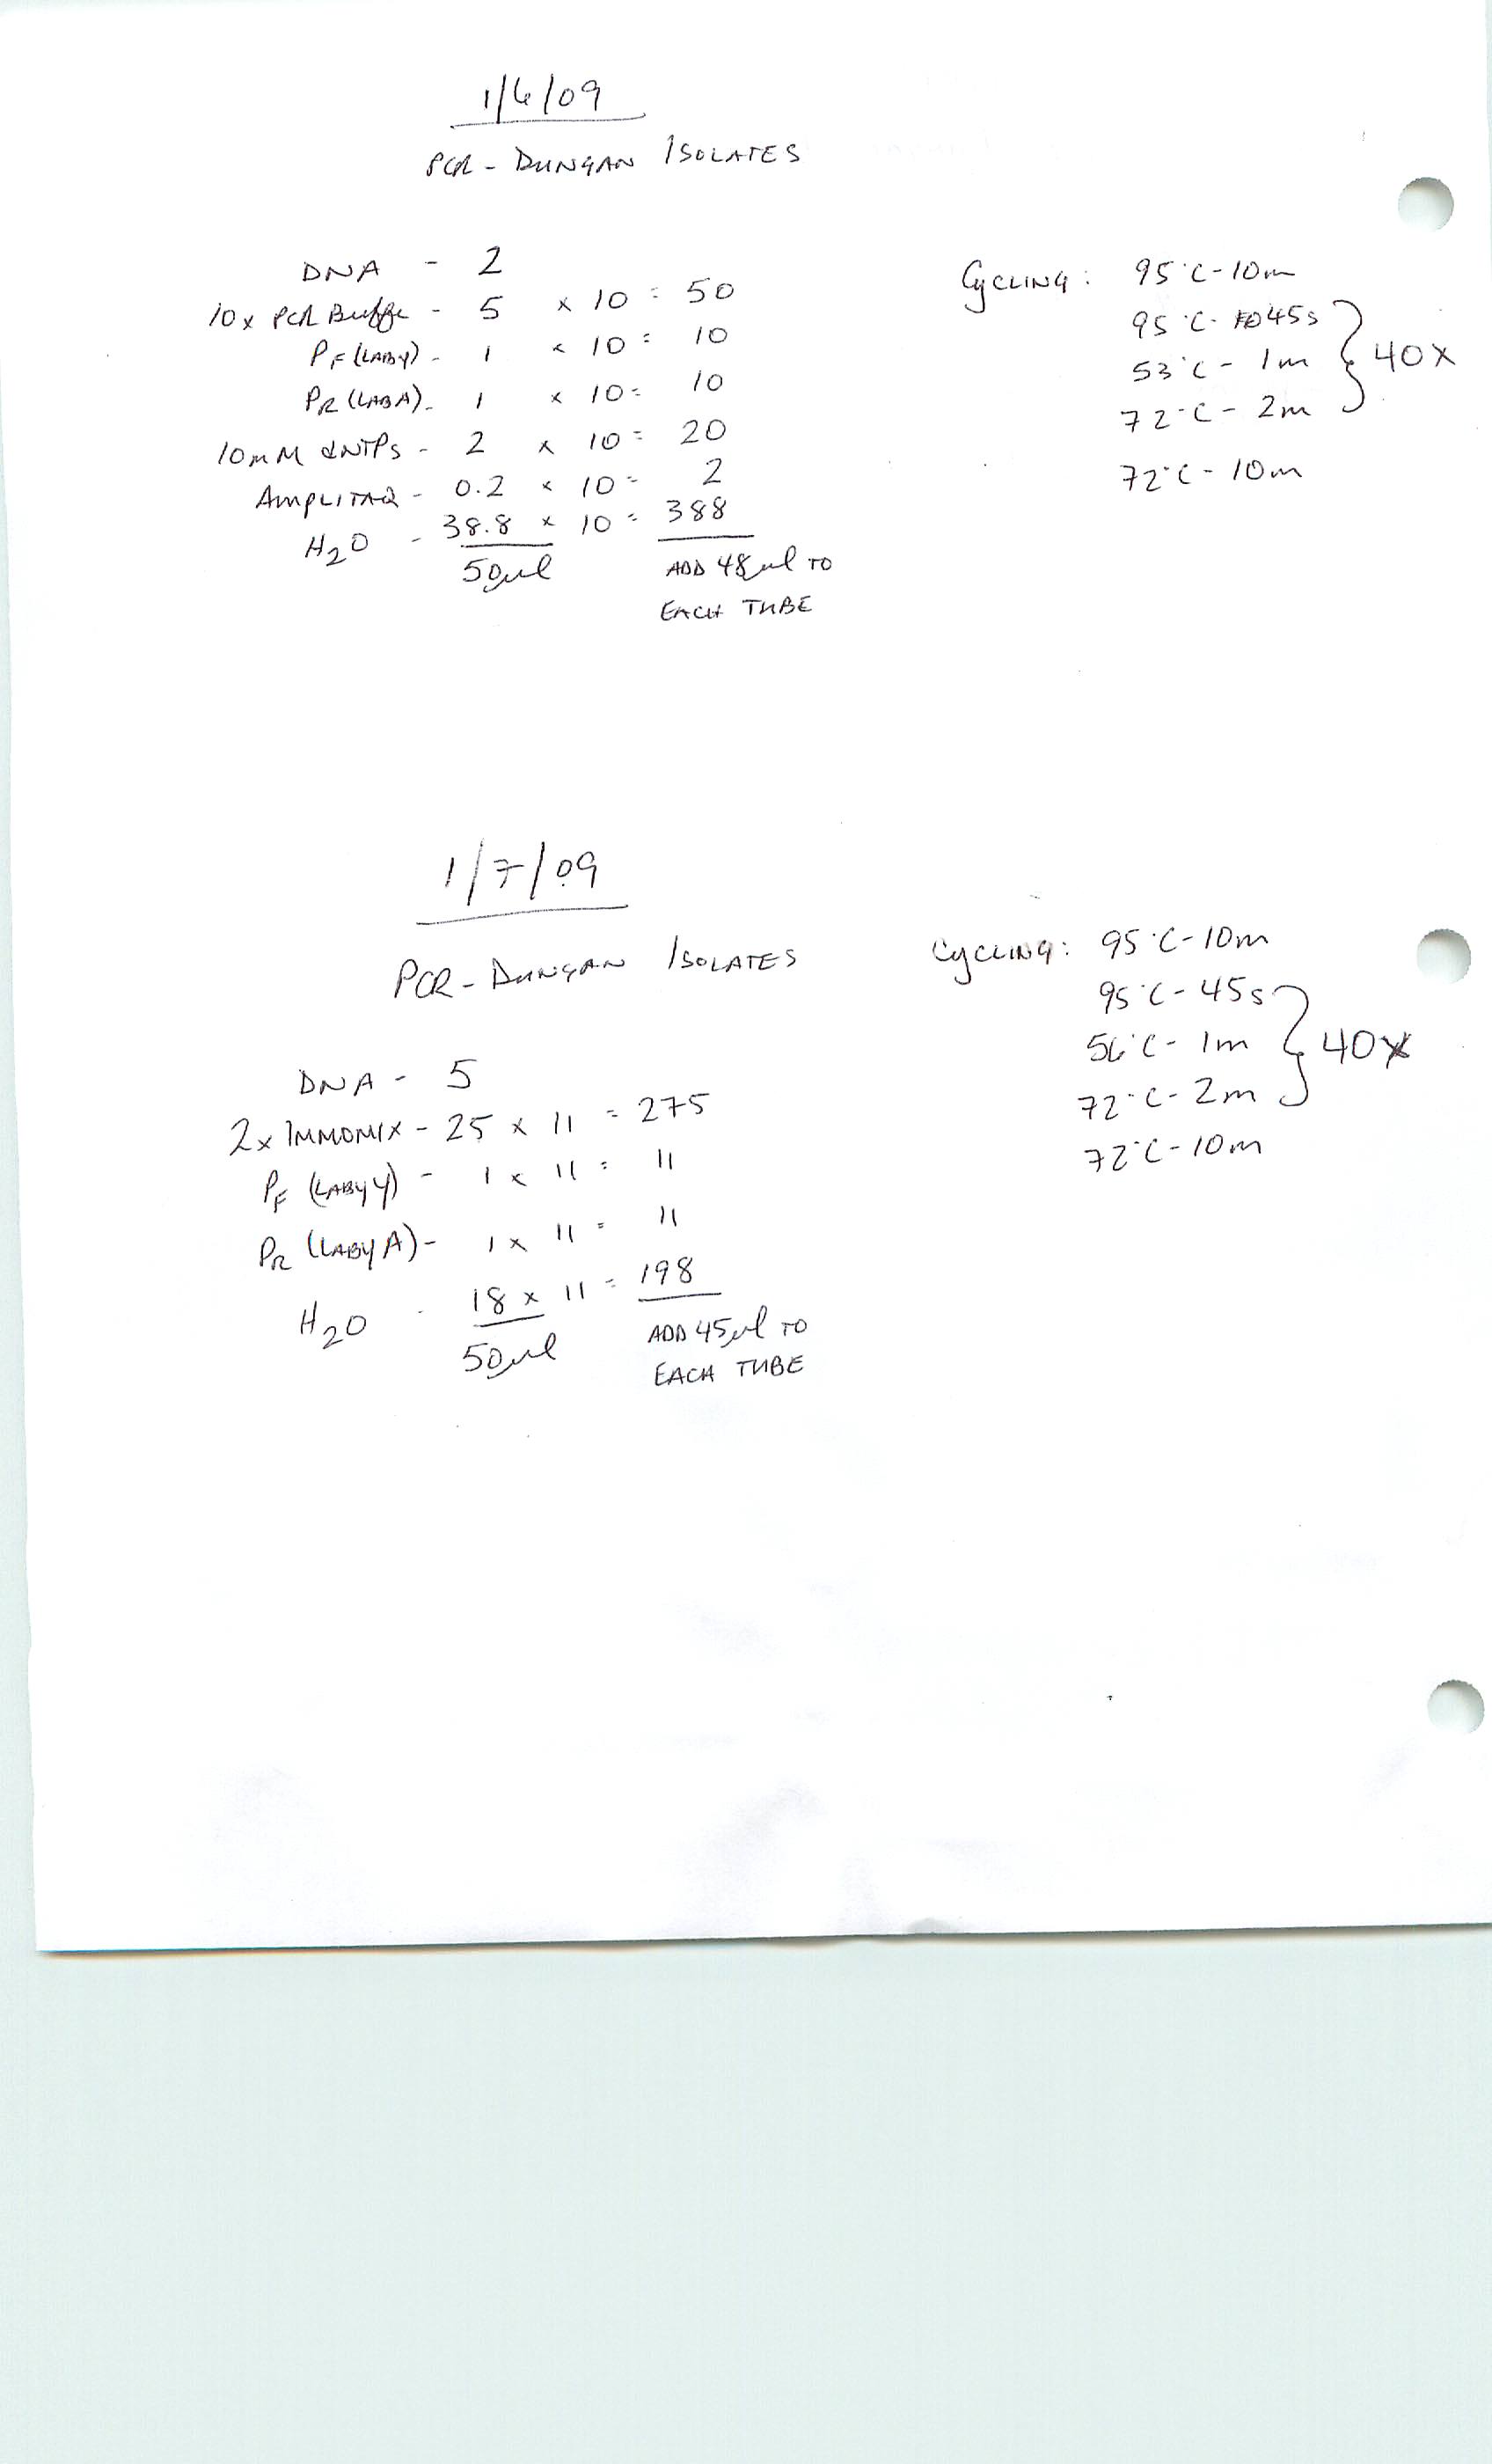 1/6/09
PCR - DUNGAN ISOLATES
DNA - 2
10x PCR Buffe - 5 x 10 = 50
PF (LABY) - 1 x 10 = 10
PR (LABA) - 1 x 10 = 10
10mM dNTPs - 2 x 10 = 20
AMPLITAQ - 0.2 x 10 = 2
H2O - 38.8 x 10 = 388
50µl
ADD 48µl TO
EACH TUBE
CyCLING: 95°C - 10m
95°C - 45s
53°C - 1m
72°C - 2m
} 40X
72°C - 10m
1/7/09
PCR - DUNGAN ISOLATES
DNA - 5
2x IMMOMIX - 25 x 11 = 275
PF (LABY Y) - 1 x 11 = 11
PR (LABY A) - 1 x 11 = 11
H2O - 18 x 11 = 198
50µl
ADD 45µl TO
EACH TUBE
CyCLING: 95°C - 10m
95°C - 45s
56°C - 1m
72°C - 2m
} 40X
72°C - 10m